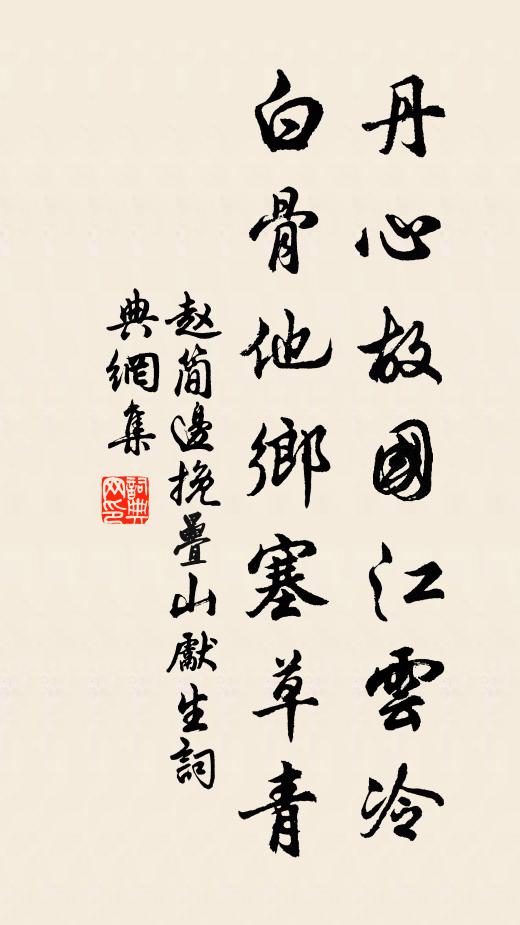 丹心故國江雲冷
白骨他鄉塞草青
赵簡邊挽疊山獻生詞
典網集
詞典
网印